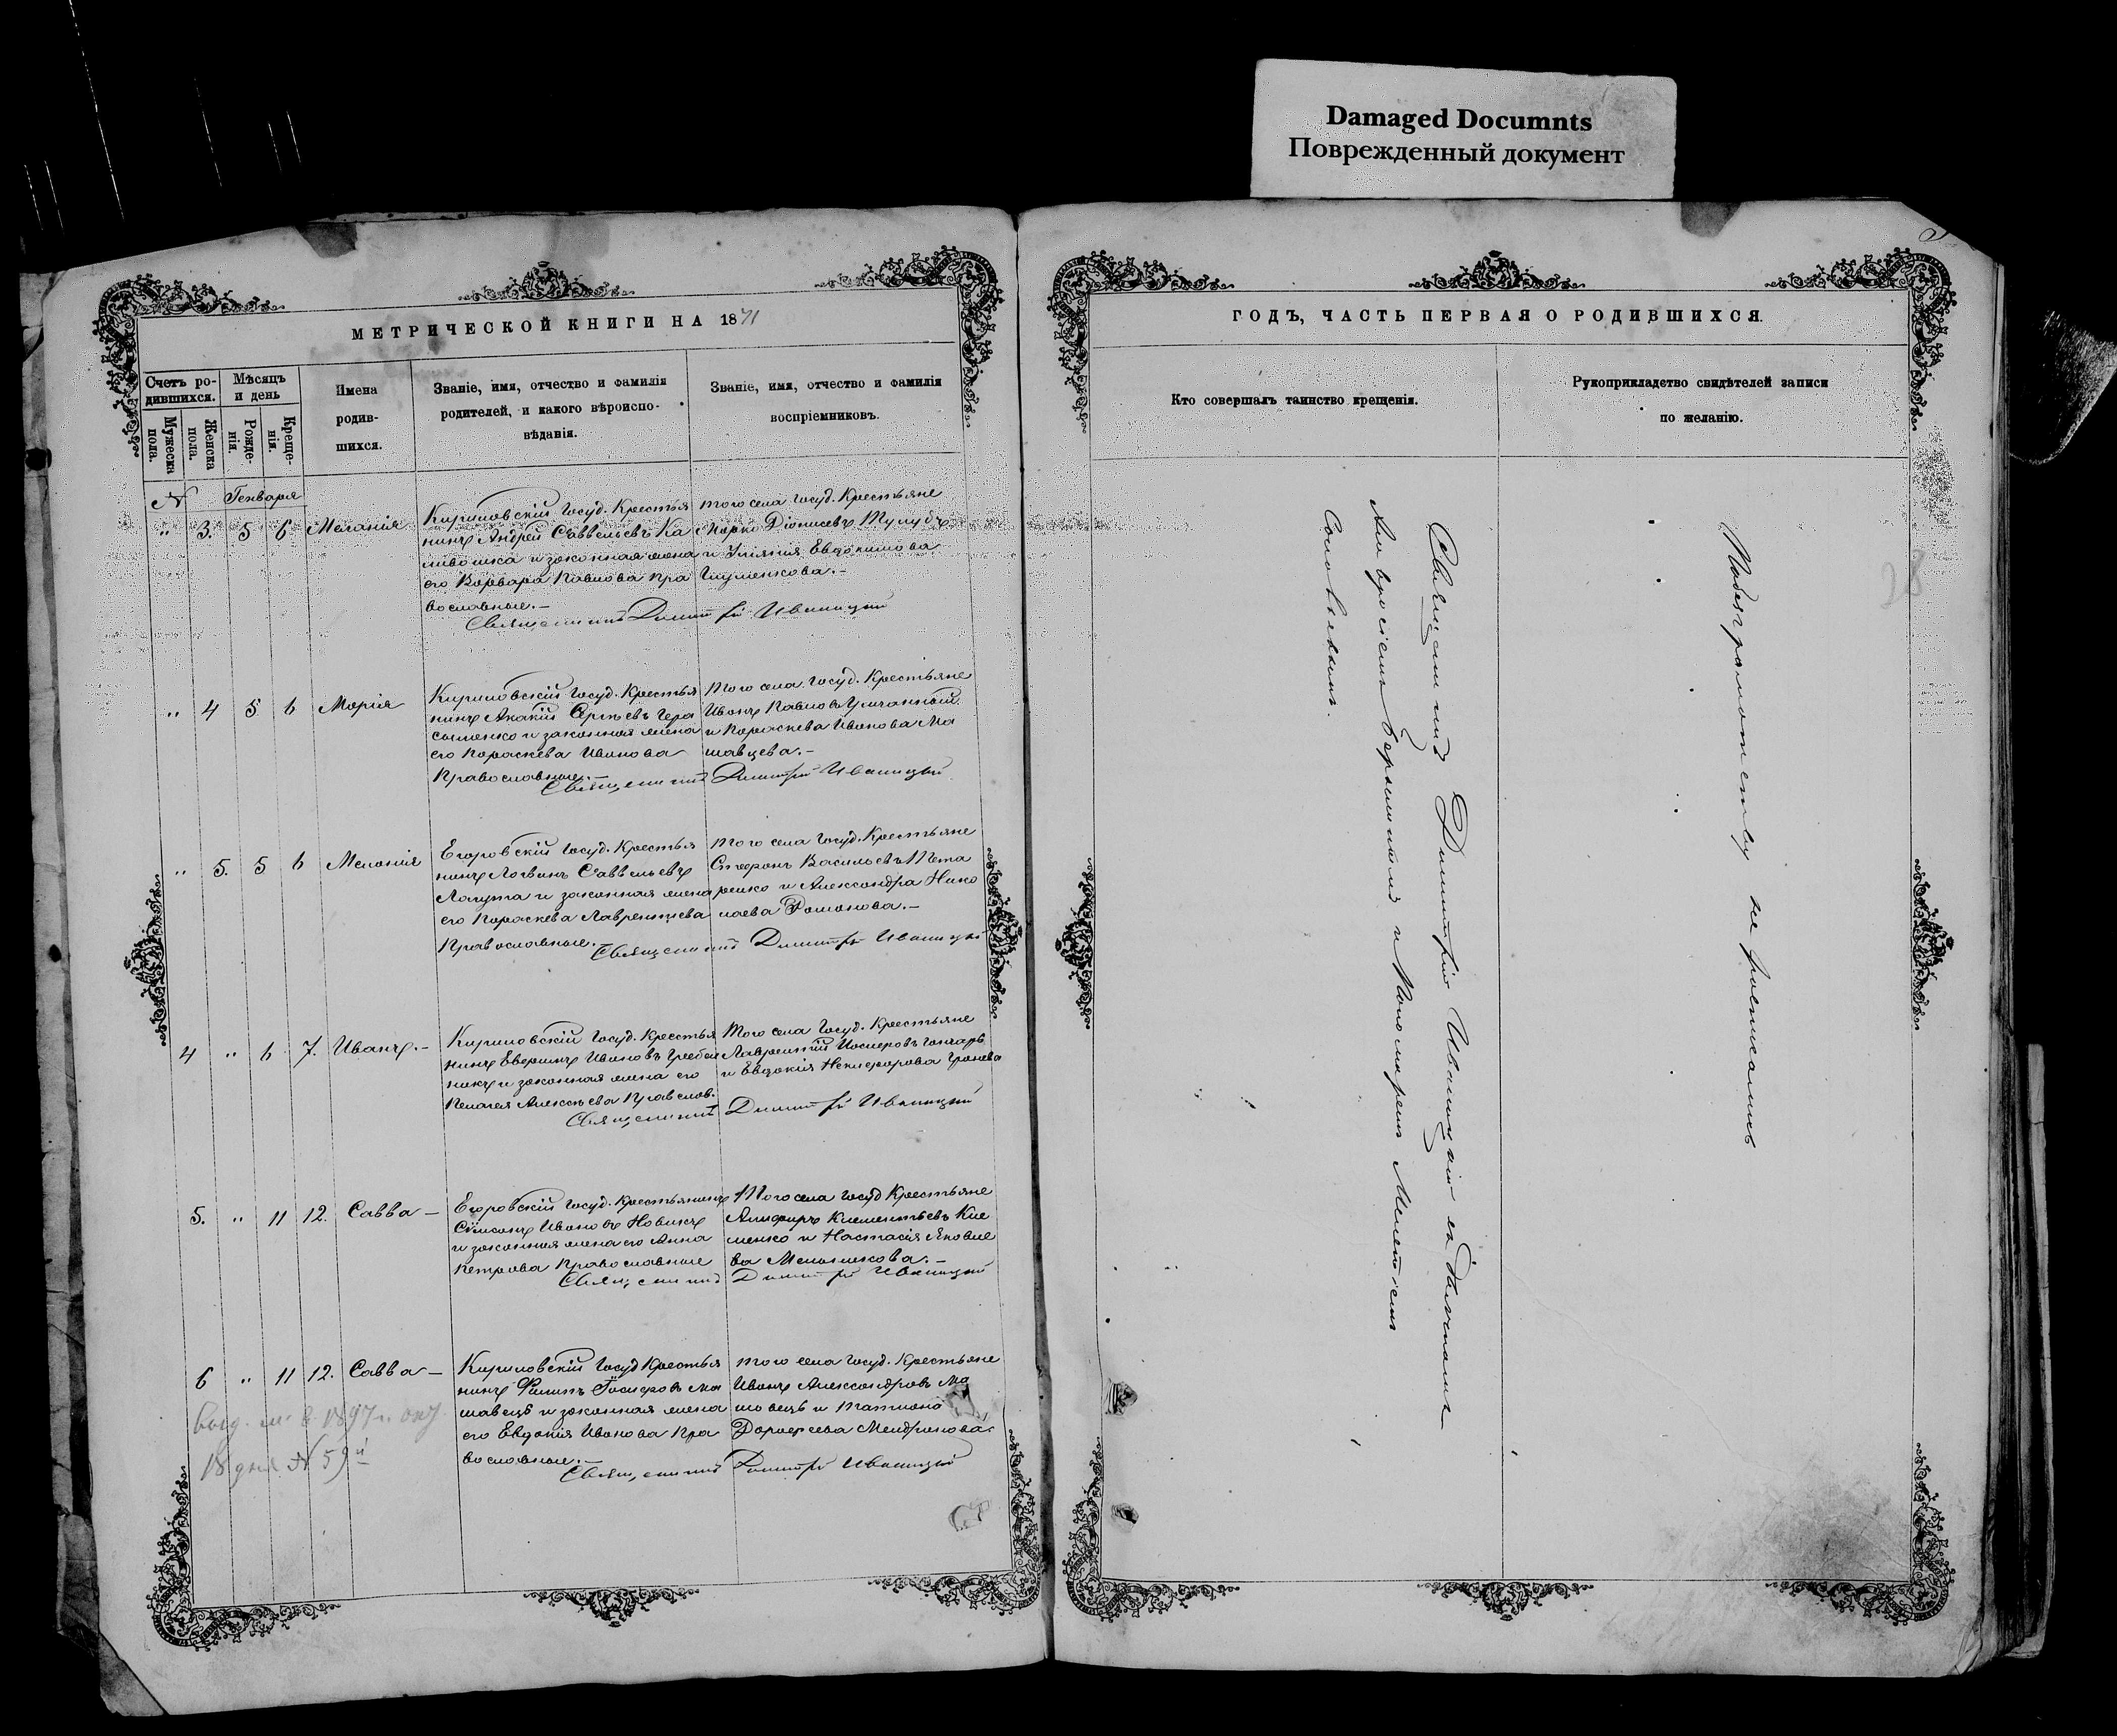 Damaged Documnts
Поврежденный документ
МЕТРИЧЕСКОЙ КНИГИ НА 1871
Счетъ родившихся.
Мужеска пола.
Женска пола.
Мѣсяцъ и день
Рожденія.
Крещенія.
Имена родившихся.
Званіе, имя, отчество и фамилія
родителей, и какого вѣроиспо-
вѣданія.
Званіе, имя, отчество и фамилія
воспріемниковъ.
N Генваря
" 3. 5 6 Меланія
Кириловскій Госуд. Крестья
нинъ Андрей Саввельевъ Ка
и законная жена
его Варвара Павлова пра
вославные.–
того села Госуд. Крестьяне
Марко Діонисевъ Тулубъ
и Евдокимова
Священникъ Димитрій Иваницкій
" 4 5 6 Марія
Кириловскій Госуд. Крестья
нинъ Акакій Сергѣевъ Гера
сименко и законная жена
его Параскева Иванова
Православные.–
того села Госуд. Крестьяне
Иванъ Павловъ
и Параскева Иванова Ма
шавцева.–
Священникъ Димитрій Иваницкій
" 5. 5 6 Меланія
Егоровскій Госуд. Крестья
нинъ Логвинъ Саввельевъ
Лагута и законная жена
его Параскева Лаврентіева
Православные.–
того села Госуд. Крестьяне
Стефанъ Васильевъ Тита
ренко и Александра Нико
лаева Романова.–
Священникъ Димитрій Иваницкій
4 " 6 7. Иванъ.–
Кириловскій Госуд. Крестья
нинъ Ивановъ Гребен
никъ и законная жена его
Пелагея Алексѣева Правслов.
Того села Госуд. Крестьяне
Лаврентій Іосифовъ Гончаръ
и Евдокія Никифорова
Священникъ Димитрій Иваницкій
5. " 11 12. Савва –
Егоровскій Госуд. Крестьянинъ
Сѵмеонъ Ивановъ Новикъ
и законная жена его Анна
Петрова православные
Того села Госуд Крестьяне
Климентьевъ Кли
менко и Настасія Яковле
ва Мельникова.–
Священникъ Димитрій Иваницкій
6 " 11 12. Савва –
Кириловскій Госуд Крестья
нинъ Филипъ Іосифовъ Ма
шавецъ и законная жена
его Евдокія Иванова Пра
вославные.–
того села Госуд. Крестьяне
Иванъ Александровъ Ма
шавецъ и Татіана
Дорофеева
Священникъ Димитрій Иваницкій
1897 г.
18 дня N 59й
ГОДЪ, ЧАСТЬ ПЕРВАЯ О РОДИВШИХСЯ.
Кто совершалъ таинство крещенія.
Рукоприкладство свидѣтелей записи
по желанію.
Священникъ Димитрій Иваницкій съ Дьячкомъ
Амвросіемъ и Пономаремъ Мелетіемъ
Соловьевымъ.
По безграмотству не росписались
28